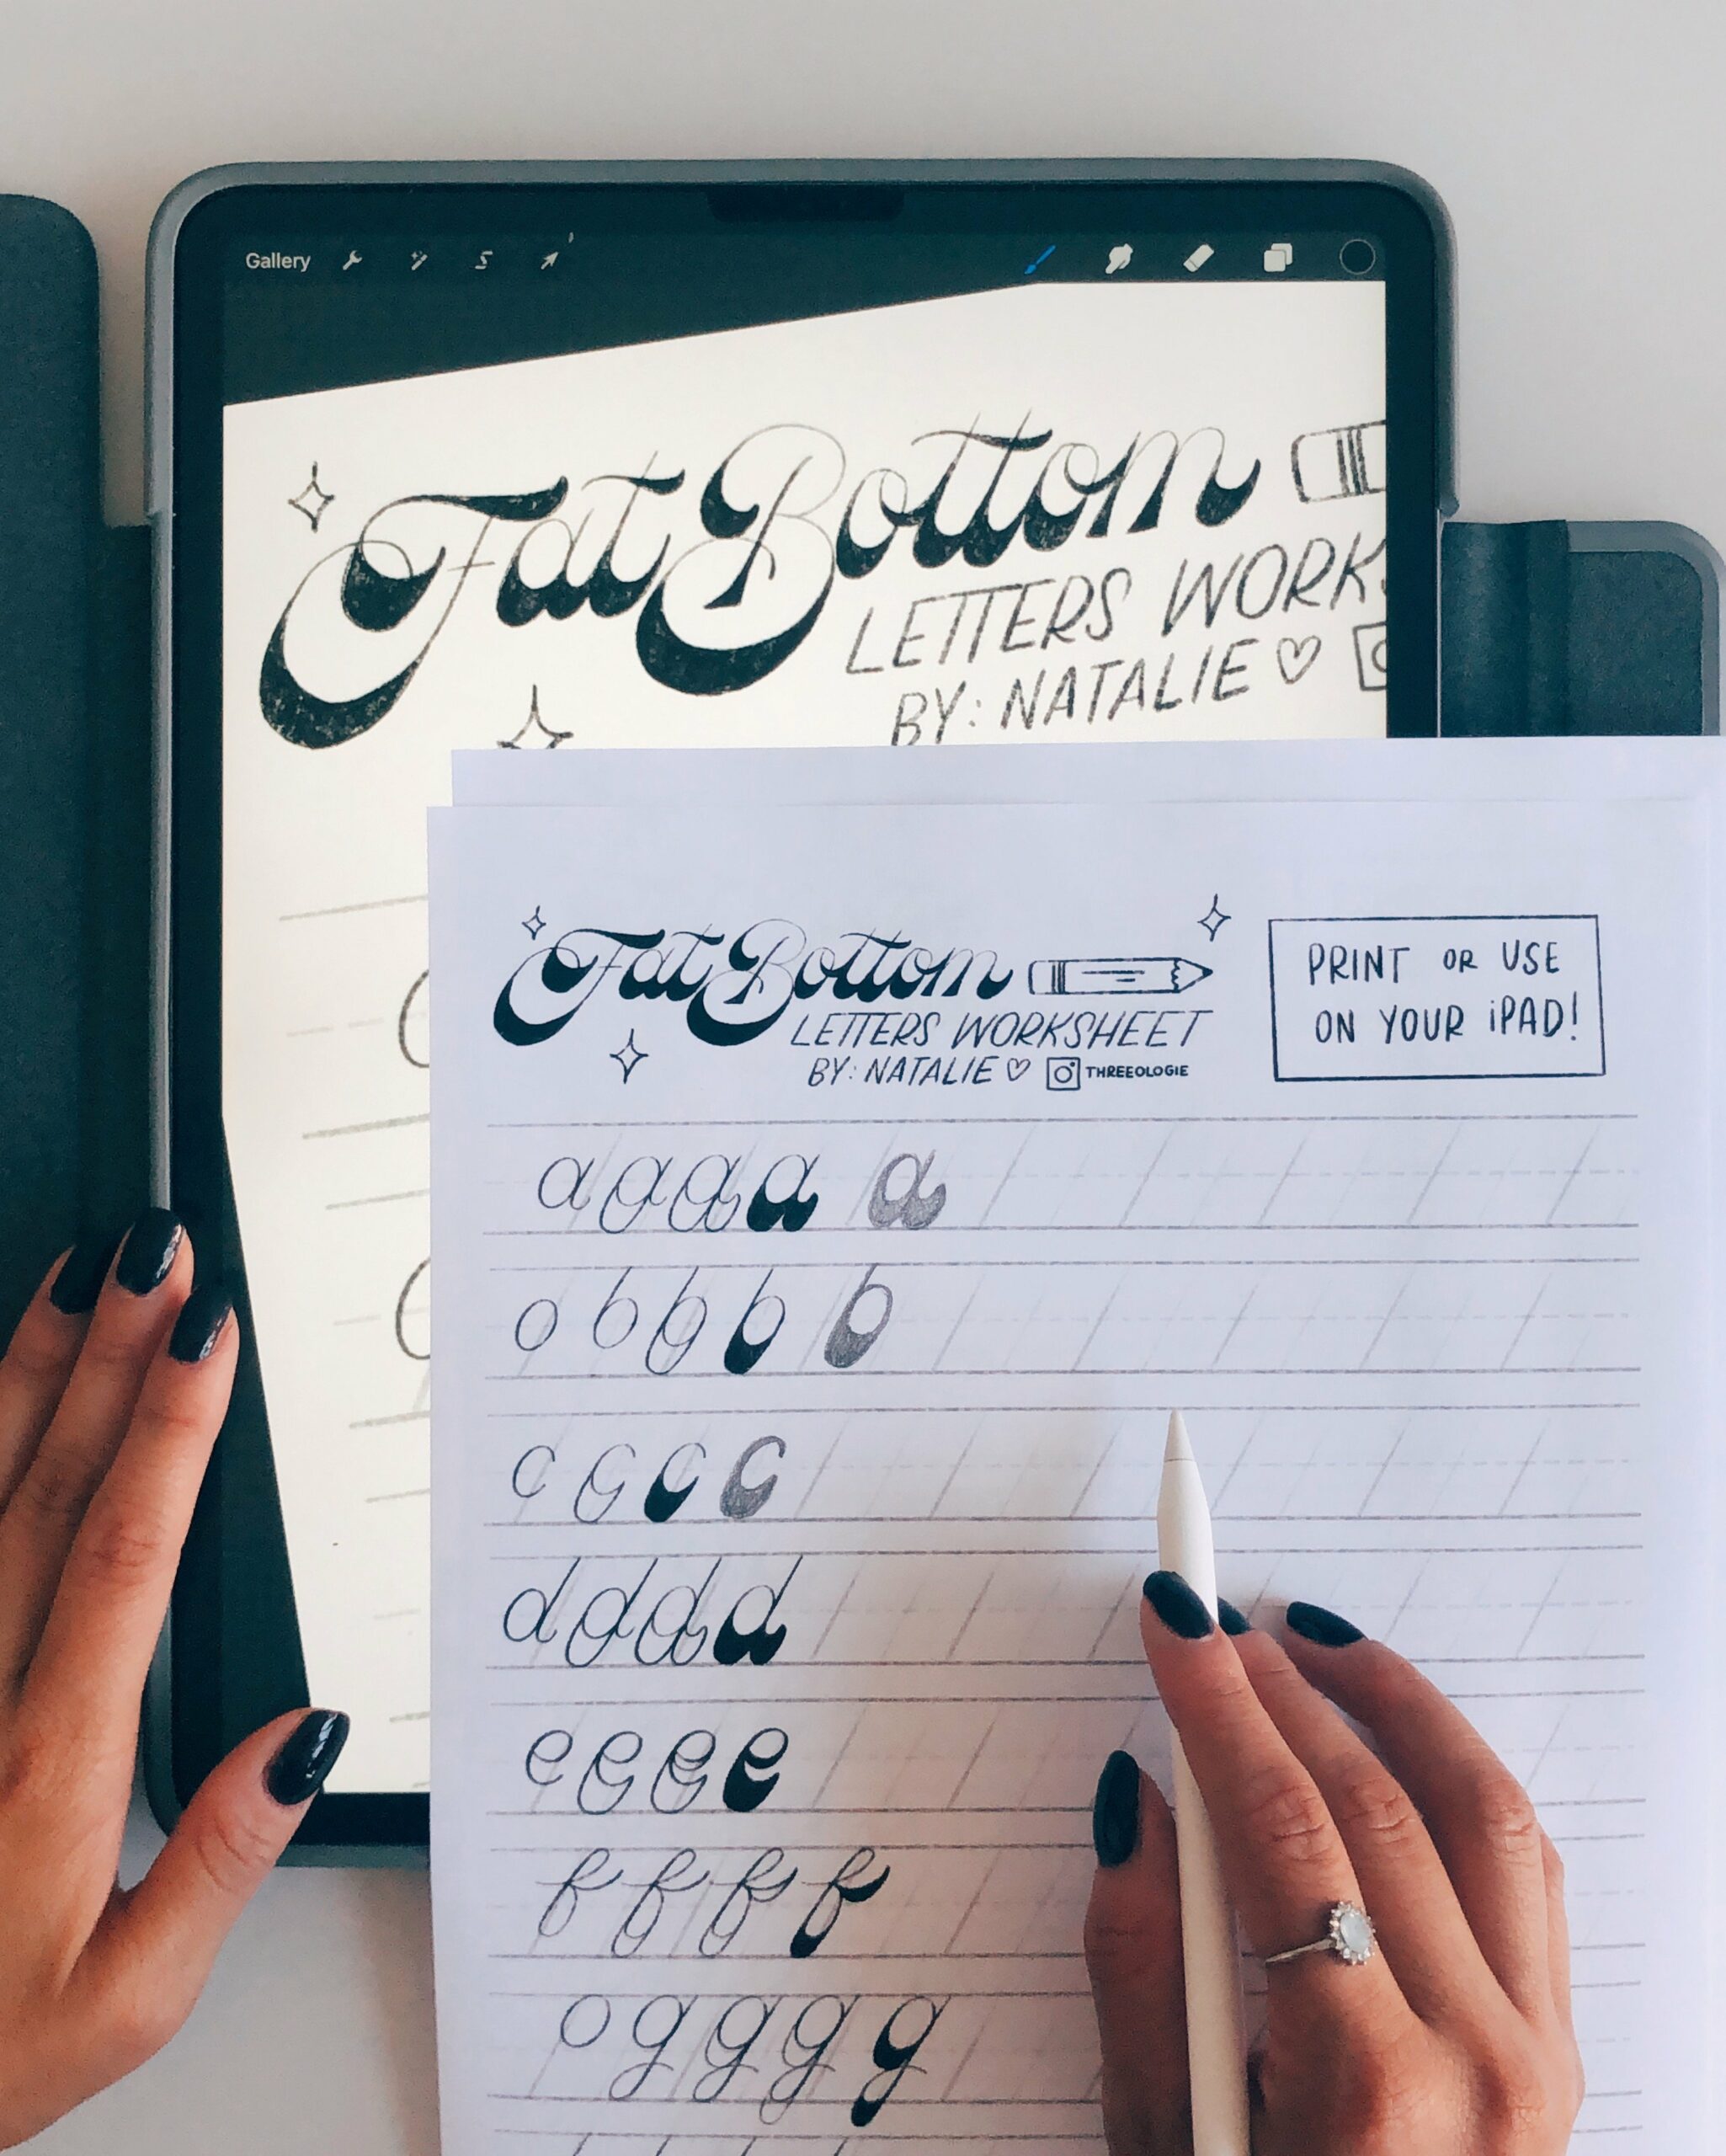 Gallery
Fat Bottom
LETTERS WORKS
BY: NATALIE
Fat Bottom
LETTERS WORKSHEET
BY: NATALIE THREEOLOGIE
PRINT OR USE
ON YOUR iPAD!
a a a a a
o b b b b
c c c c
d d d d
e e e e
f f f f
o g g g g